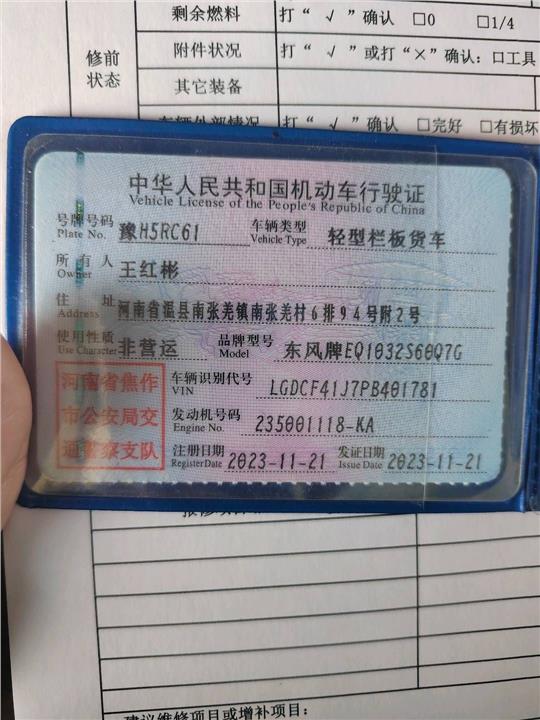 剩余燃料 打“ √ ”确认 □0 □1/4
修前状态
附件状况 打“ √ ”或打“×”确认：□工具
其它装备
车辆外部情况 打“ √ ”确认 □完好 □有损坏
中华人民共和国机动车行驶证
Vehicle License of the People's Republic of China
号牌号码 豫H5RC61 车辆类型 轻型栏板货车
Plate No. Vehicle Type
所有人 王红彬
Owner
住址 河南省温县南张羌镇南张羌村6排94号附2号
使用性质 非营运 品牌型号 东风牌EQ1032S60Q7G
Use Character Model
河南省焦作
市公安局交
通警察支队
车辆识别代号 LGDCF41J7PB401781
VIN
发动机号码 235001118-KA
Engine No.
注册日期 2023-11-21 发证日期 2023-11-21
Register Date Issue Date
建议维修项目或增补项目：